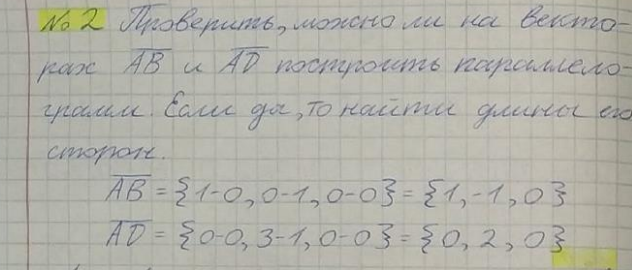 №2 Проверить, можно ли на векто-
рах AB и AD построить параллело-
грамм. Если да, то найти длины его
сторон.
AB = {1-0, 0-1, 0-0} = {1, -1, 0}
AD = {0-0, 3-1, 0-0} = {0, 2, 0}